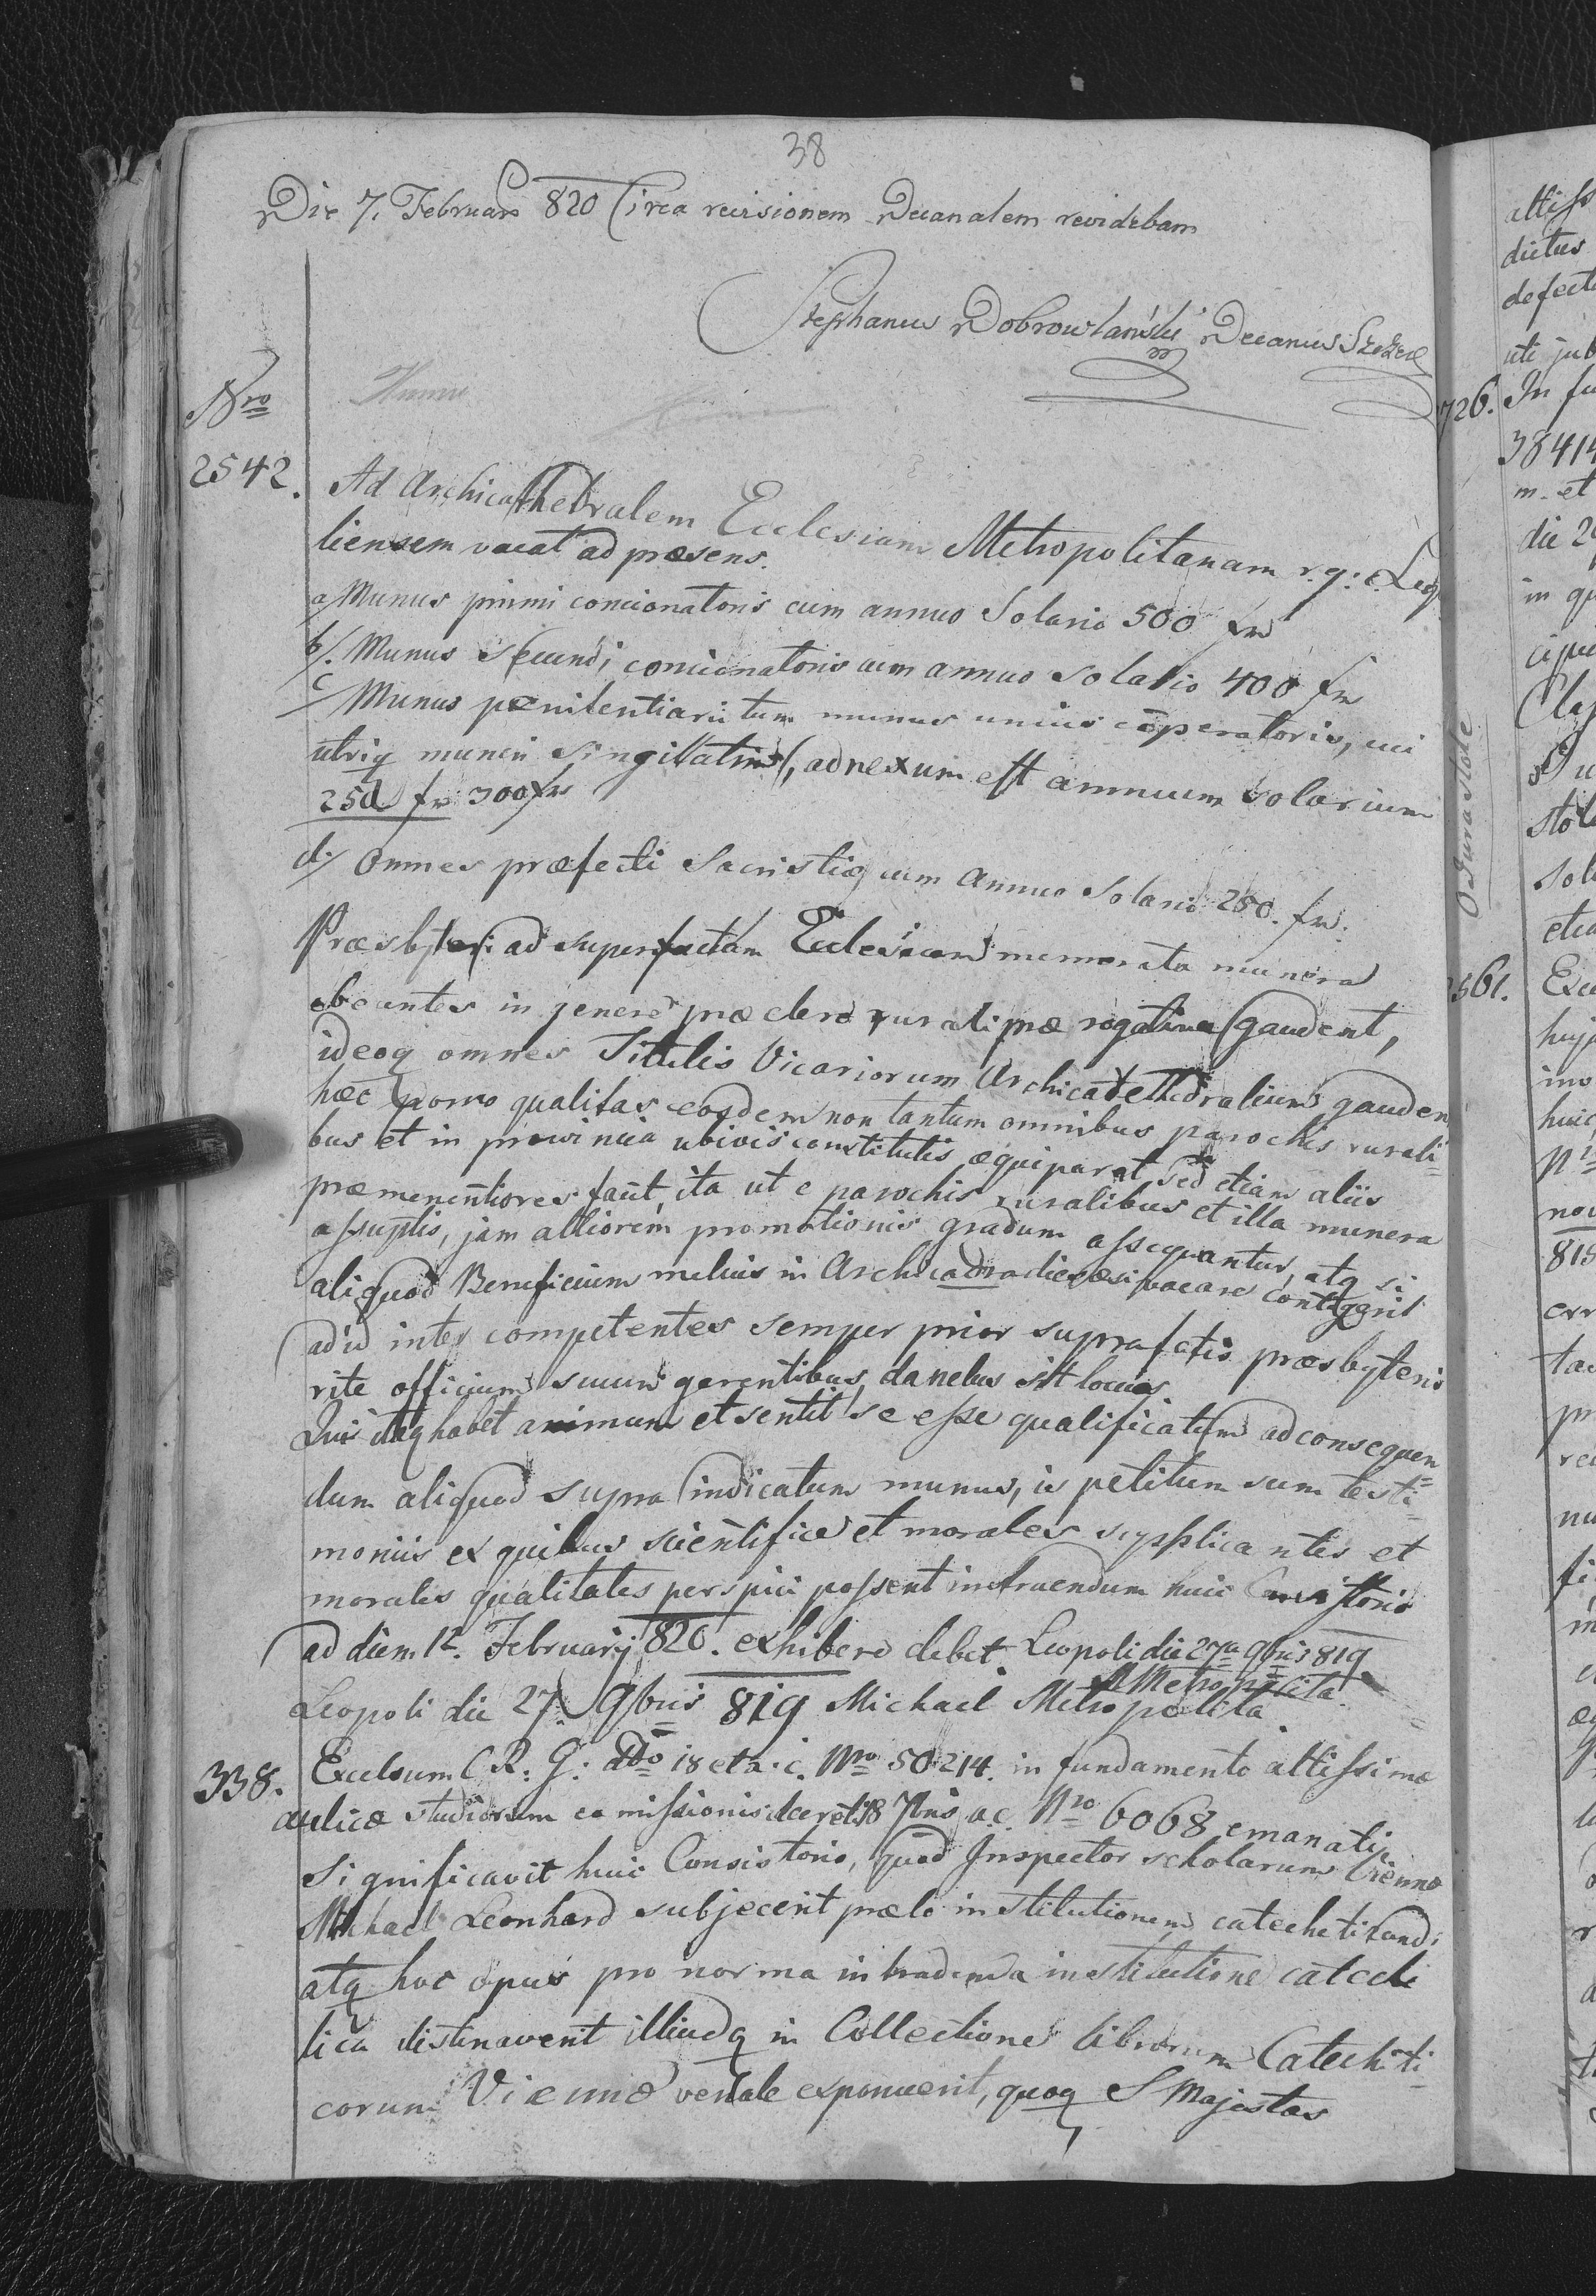 38
Die 7. Februari 820 Circa revisionem Decanalem revidebam
Stephanus Dobrowlański Decanus
Nro
2542. Ad Archicathedralem Ecclesiam Metropolitanam r. g: c. Leopo
liensem vacat ad præsens.
a/ Munus primi concionatoris cum annuo Solario 500 fr
b/. Munus secundi concionatoris cum annuo solario 400 fr
c/ Munus pœnitentiarii tum munus unius cooperatoris, cui
utriq muneri singillatim, adnexum est annuum solarium
250 fr 300 fr
d./ Omnes præfecti Sacristiæ cum Annuo Solario 250. fr.
Præsbyteri ad superfactam Ecclesiam memorata munera
obeuntes in genere præ clero rurali præ rogativa gaudent,
ideoq omnes Titulis Vicariorum Archicathedralium gauden
hæc porro qualitas eosdem non tantum omnibus parochis rurali=
bus et in provincia ubivis constitutis æquiparat, sed etiam aliis
præmenentiores faŭt, ita ut e parochis ruralibus et illa munera
assuptis, jam altiorem promotionis gradum assequantur, atq si
aliquod Beneficium melius in Archicadradiecæsi vacare contigerit
ad id inter competentes semper prior suprafatis præsbyteris
rite officium suum gerentibus danebus sit locus.
Qui itaq habet animum et sentit se esse qualificatum ad consequen
dum aliquod supra indicatum munus, is petitum sum testi=
moniis ex quibus scientifice et morales supplicantis et
morales qualitates perspici possent instruendum huic Consistorio
ad diem 12. Februarij 820. exhibere debet. Leopoli die 27a 9bris 819
M Metropolita
Leopoli die 27. 9bris 819 Michael Metropolita.
338. Excelsum C. R. G: ddo 18 et a. c. Nro 50214. in fundamento altissimæ
aulicæ studiorum comissionis decreti 18 7bris a.c. Nro 6068 emanati,
significavit huic Consistorio, quod Inspector scholarum Viennæ
Michael Leonhard subjecerit prælo institutionem catechetisandi
atq hoc opus pro norma in tradenda institutione catech
tica distinaverit illiudq in Collectione librorum Catecheti=
corum Viennæ venale exponuerit, quoq S Majestas
726.
561.
O Jura stolæ
altiss
dictus
defect
uti jub
In fu
38414
m. et
die 2
in qu
stol
sol
etia
Exc
huj
huic
nov
819
err